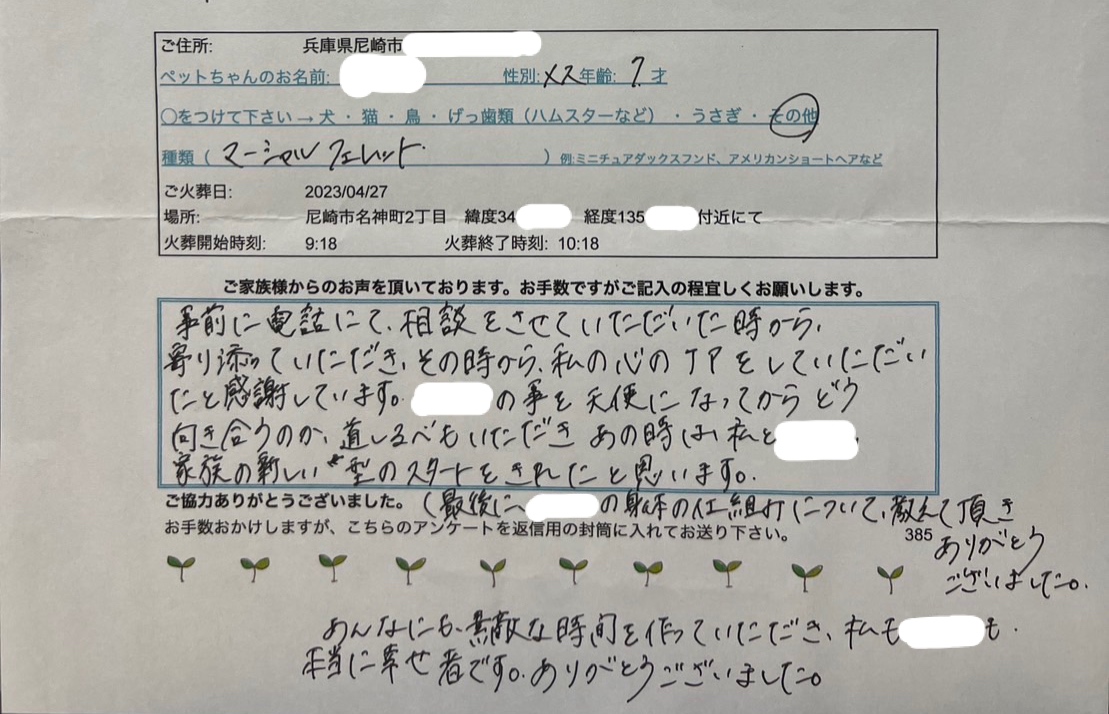 ご住所: 兵庫県尼崎市
ペットちゃんのお名前: 性別:メス 年齢: 7才
○をつけて下さい→ 犬 ・ 猫 ・ 鳥 ・ げっ歯類（ハムスターなど） ・ うさぎ ・ その他
種類（ マーシャル フェレット ）例:ミニチュアダックスフンド、アメリカンショートヘアなど
ご火葬日: 2023/04/27
場所: 尼崎市名神町2丁目 緯度34 経度135 付近にて
火葬開始時刻: 9:18 火葬終了時刻: 10:18
ご家族様からのお声を頂いております。お手数ですがご記入の程宜しくお願いします。
事前に電話にて、相談をさせていただいた時から、
寄り添っていただき、その時から、私の心のケアをしていただい
たと感謝しています。 の事を天使になってからどう
向き合うのか、道しるべもいただき あの時は、私と 、
家族の新しい〝型のスタートをきれたと思います。
ご協力ありがとうございました。（最後に、 の身体の仕組みについて、教えて頂き
お手数おかけしますが、こちらのアンケートを返信用の封筒に入れてお送り下さい。 385
ありがとう
ございました。
あんなにも、素敵な時間を作っていただき、私も も、
本当に幸せ者です。ありがとうございました。